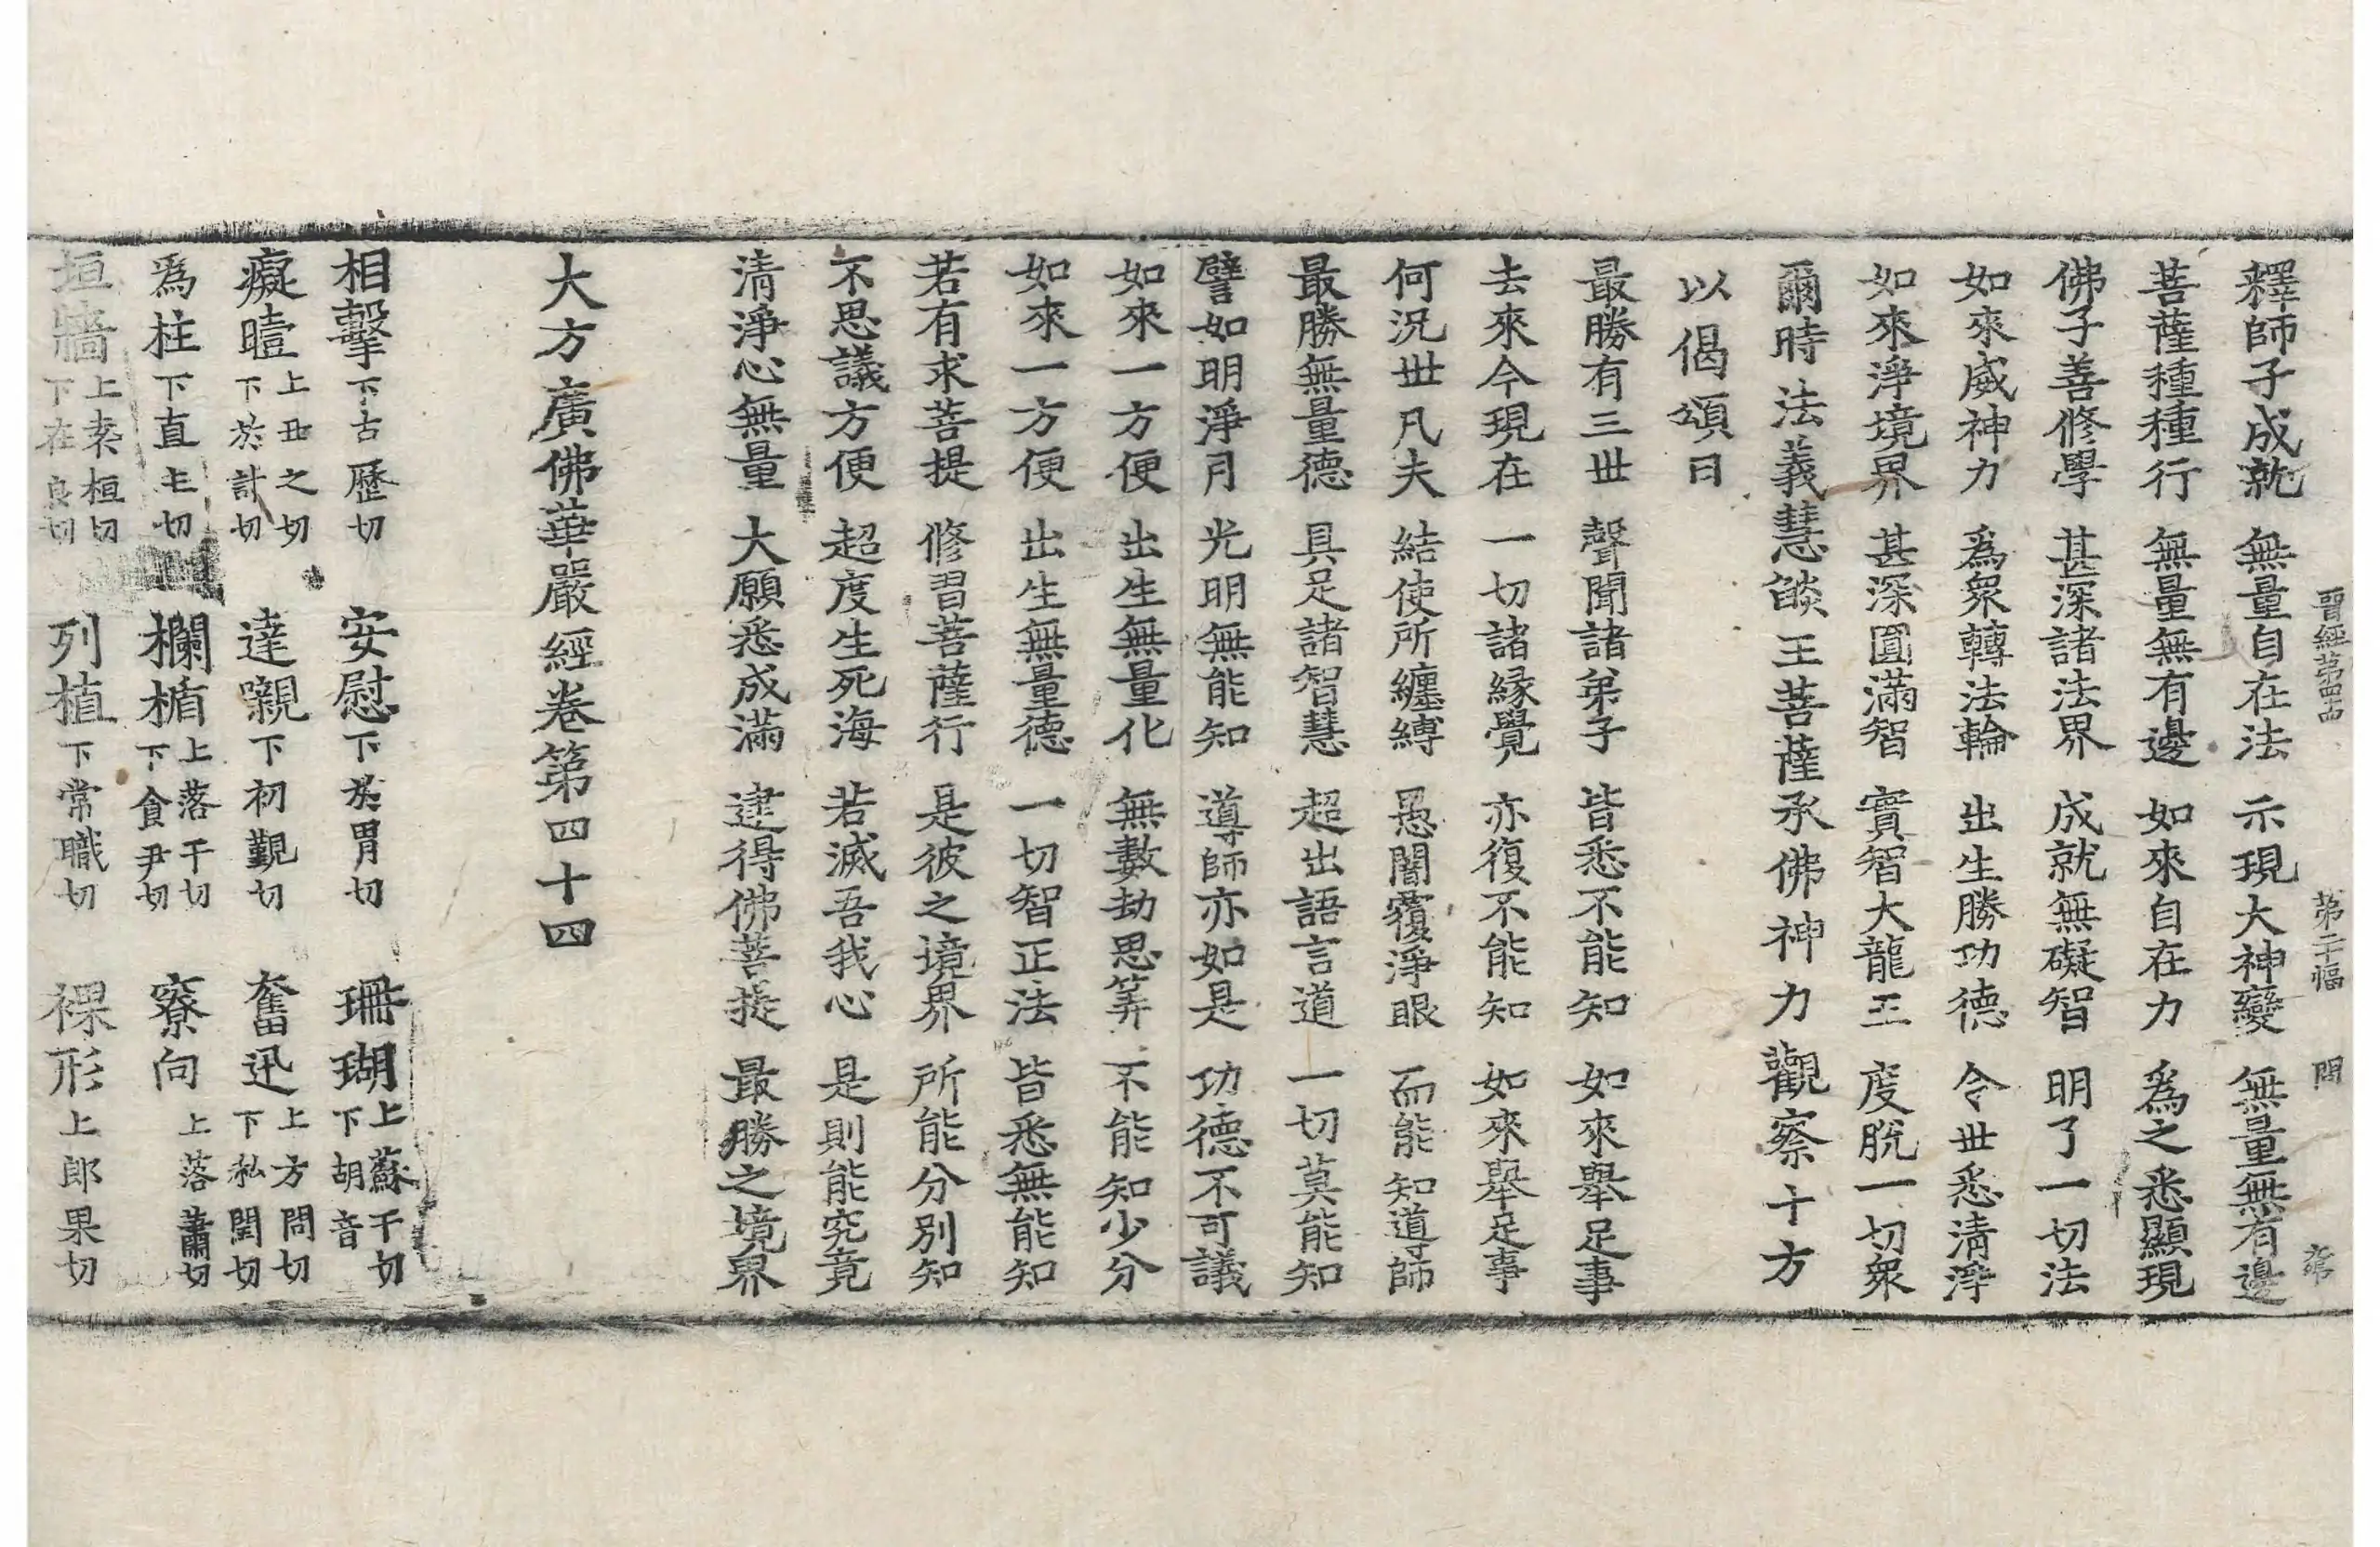 晋經第四十四 第二十幅 問
釋師子成就 無量自在法 示現大神變 無量無有邊
菩薩種種行 無量無有邊 如來自在力 爲之悉顯現
佛子善修學 甚深諸法界 成就無礙智 明了一切法
如來威神力 爲衆轉法輪 出生勝功德 令世悉清淨
如來淨境界 甚深圓滿智 實智大龍王 度脫一切衆
爾時法義慧燄王菩薩承佛神力觀察十方
以偈頌曰
最勝有三世 聲聞諸弟子 皆悉不能知 如來舉足事
去來今現在 一切諸緣覺 亦復不能知 如來舉足事
何況世凡夫 結使所纏縛 愚闇覆淨眼 而能知道師
最勝無量德 具足諸智慧 超出語言道 一切莫能知
譬如明淨月 光明無能知 導師亦如是 功德不可議
如來一方便 出生無量化 無數劫思筭 不能知少分
如來一方便 出生無量德 一切智正法 皆悉無能知
若有求菩提 修習菩薩行 是彼之境界 所能分別知
不思議方便 超度生死海 若滅吾我心 是則能究竟
清淨心無量 大願悉成滿 逮得佛菩提 最勝之境界
大方廣佛華嚴經卷第四十四
相擊下古歷切 安慰下於胃切 珊瑚上蘇干切下胡音
癡曀上丑之切下於計切 達嚫下初覲切 奮迅上方問切下私閏切
爲柱下直主切 欄楯上落干切下食尹切 寮向上落蕭切
垣牆上袁桓切下在良切 列植下常職切 裸形上郎果切